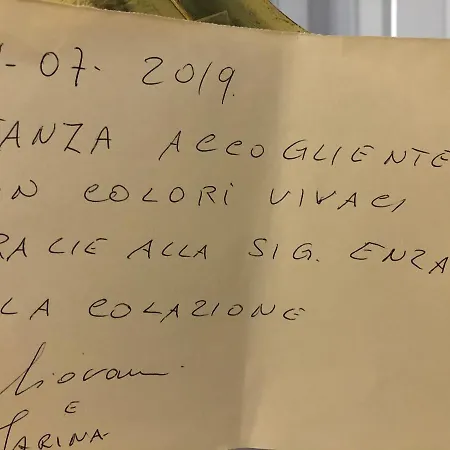 -07- 2019.
TANZA ACCOGLIENTE
ON COLORI VIVACI
RAZIE ALLA SIG. ENZA
LA COLAZIONE
Giovanni
E
MARINA